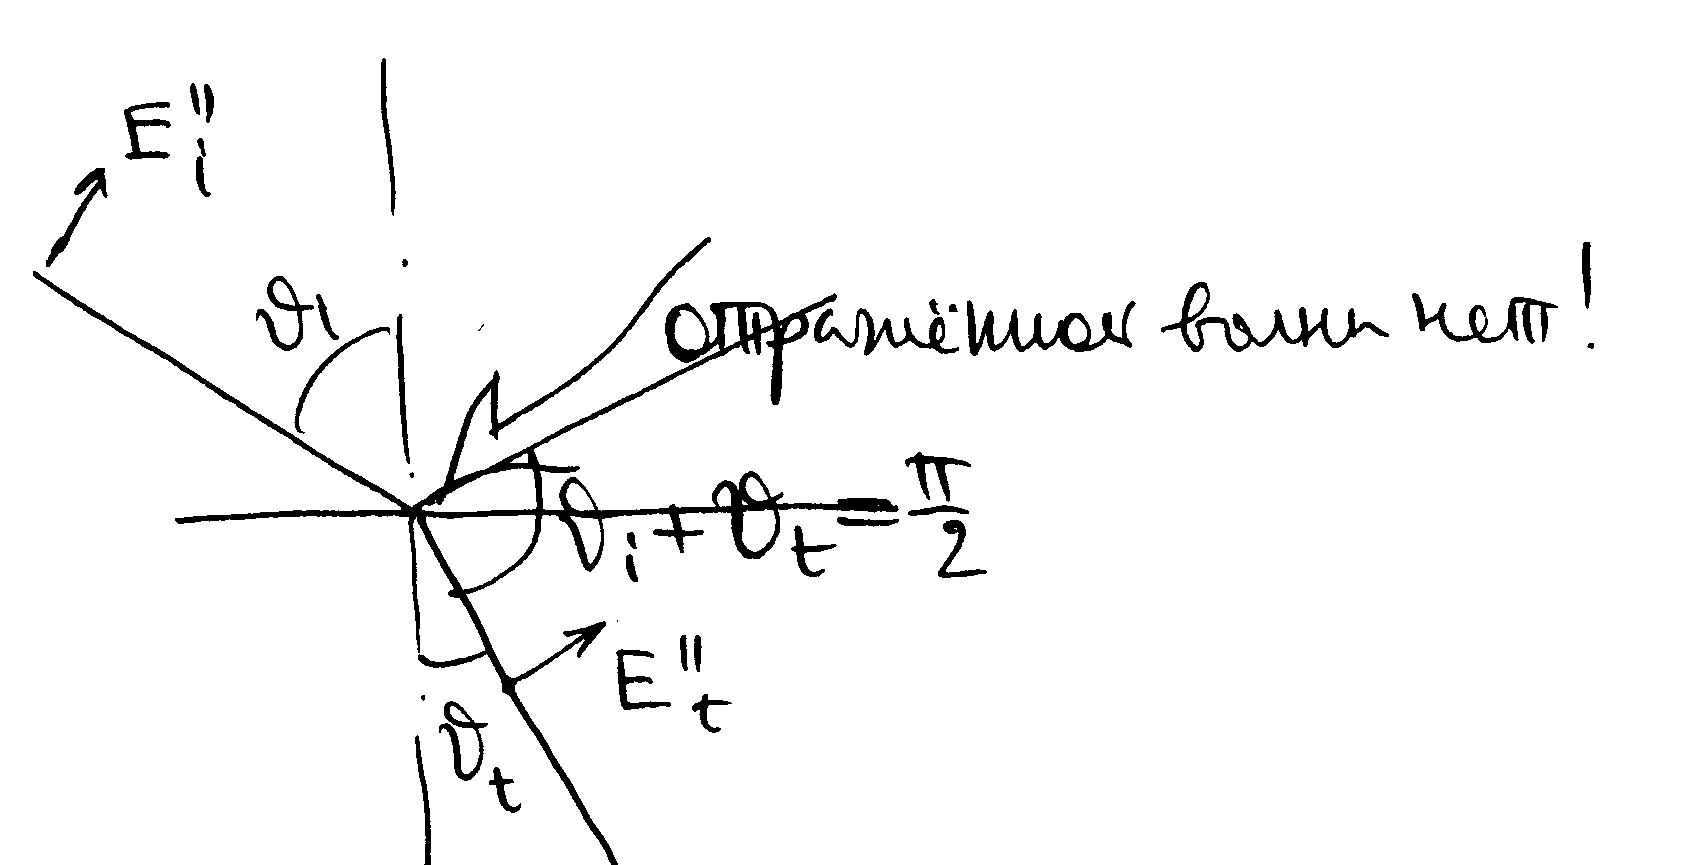 E″ᵢ
ϑᵢ
отражённой волны нет!
ϑᵢ + ϑₜ = π/2
E″ₜ
ϑₜ